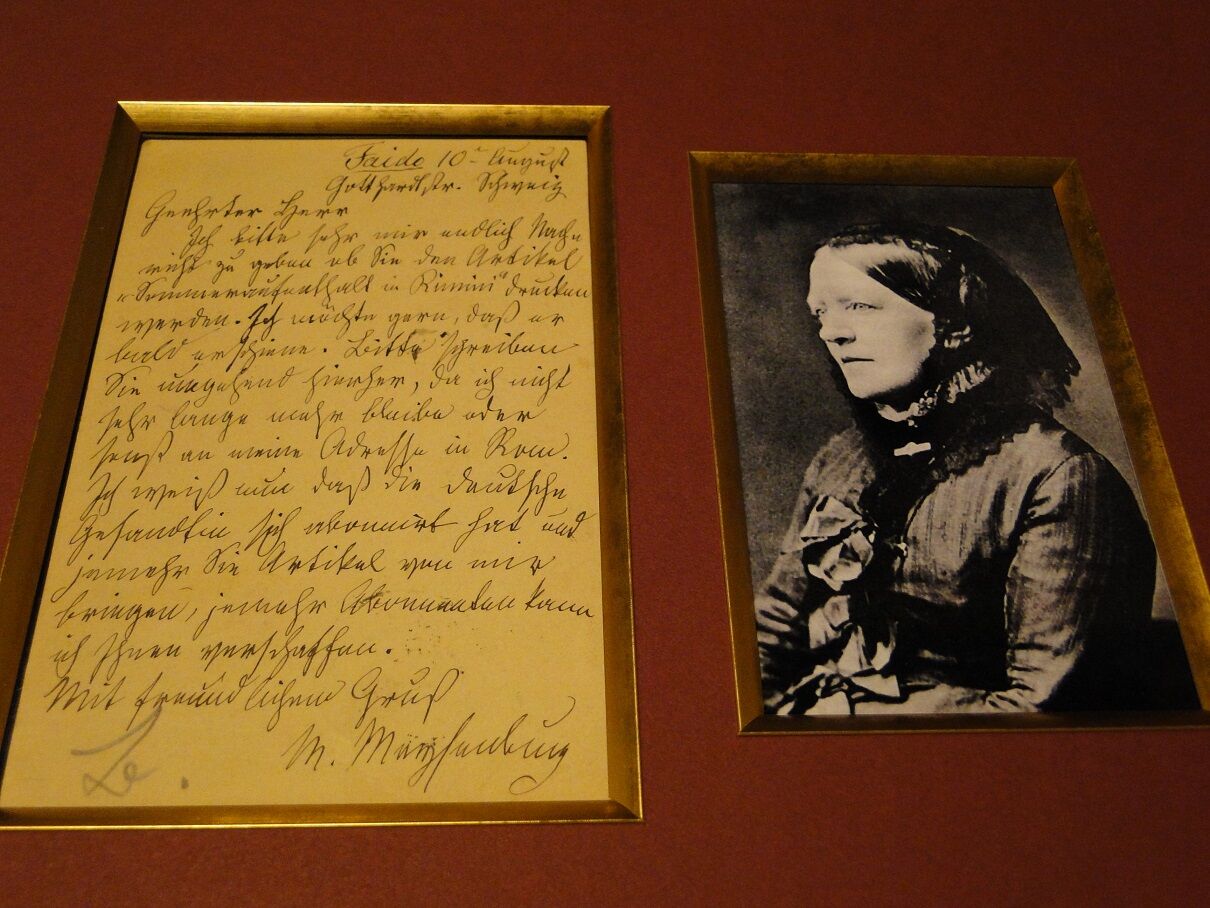 Faido 10ᵗ August
Gotthardstr. Schweiz
Geehrter Herr
Ich bitte sehr mir endlich Nach-
richt zu geben ob Sie den Artikel
„Sommeraufenthalt in Rimini" drucken
werden. Ich möchte gern, daß er
bald erschiene. Bitte schreiben
Sie umgehend hierher, da ich nicht
sehr lange mehr bleibe oder
sonst an meine Adresse in Rom.
Ich weiß nun daß die deutsche
Gesandtin sich abonnirt hat und
jemehr Sie Artikel von mir
bringen, jemehr Abonnenten kann
ich Ihnen verschaffen.
Mit freundlichem Gruß
M. Meysenbug